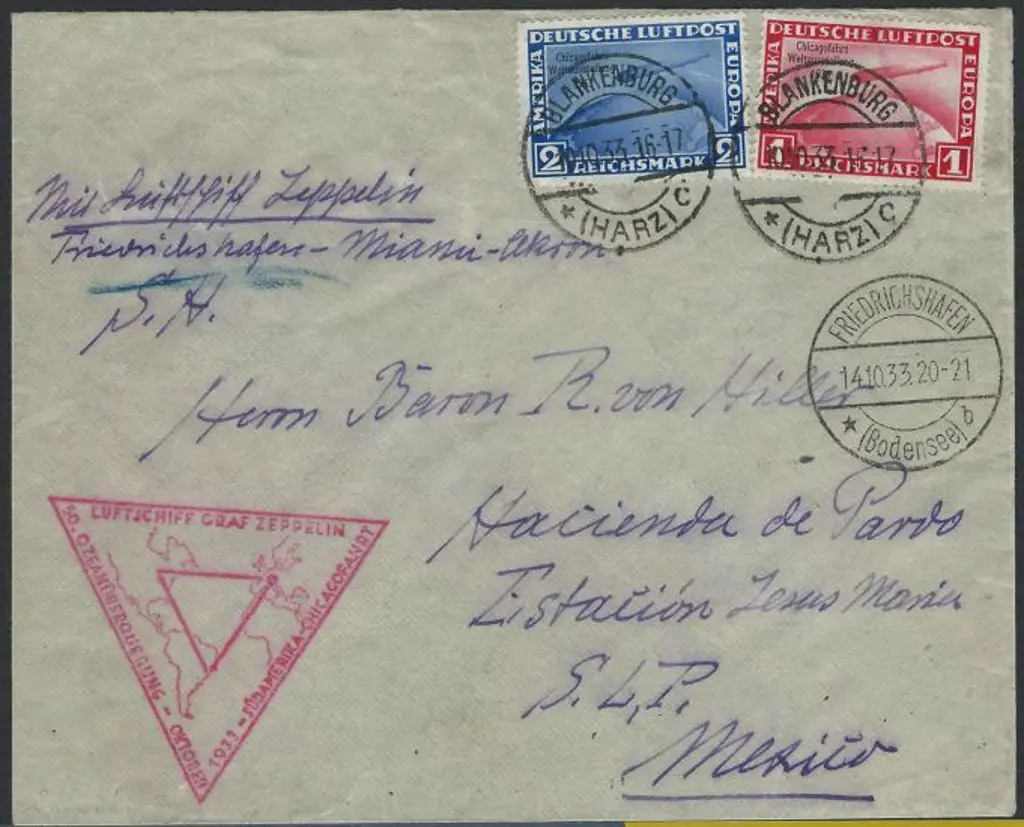 DEUTSCHE LUFTPOST
AMERIKA
EUROPA
Chicagofahrt
2 REICHSMARK 2
DEUTSCHE LUFTPOST
AMERIKA
EUROPA
Chicagofahrt
1 REICHSMARK 1
BLANKENBURG
10.10.33.16-17
(HARZ) C
BLANKENBURG
10.10.33.16-17
(HARZ) C
Mit Luftschiff Zeppelin
Friedrichshafen - Miami - Akron
FRIEDRICHSHAFEN
14.10.33.20-21
(Bodensee) b
Herrn Baron R. von Hiller
Hacienda de Pardo
Estación Jesus Maria
S. L. P.
Mexico
LUFTSCHIFF GRAF ZEPPELIN
50. OZEANÜBERQUERUNG - OKTOBER
1933 - SÜDAMERIKA-CHICAGOFAHRT